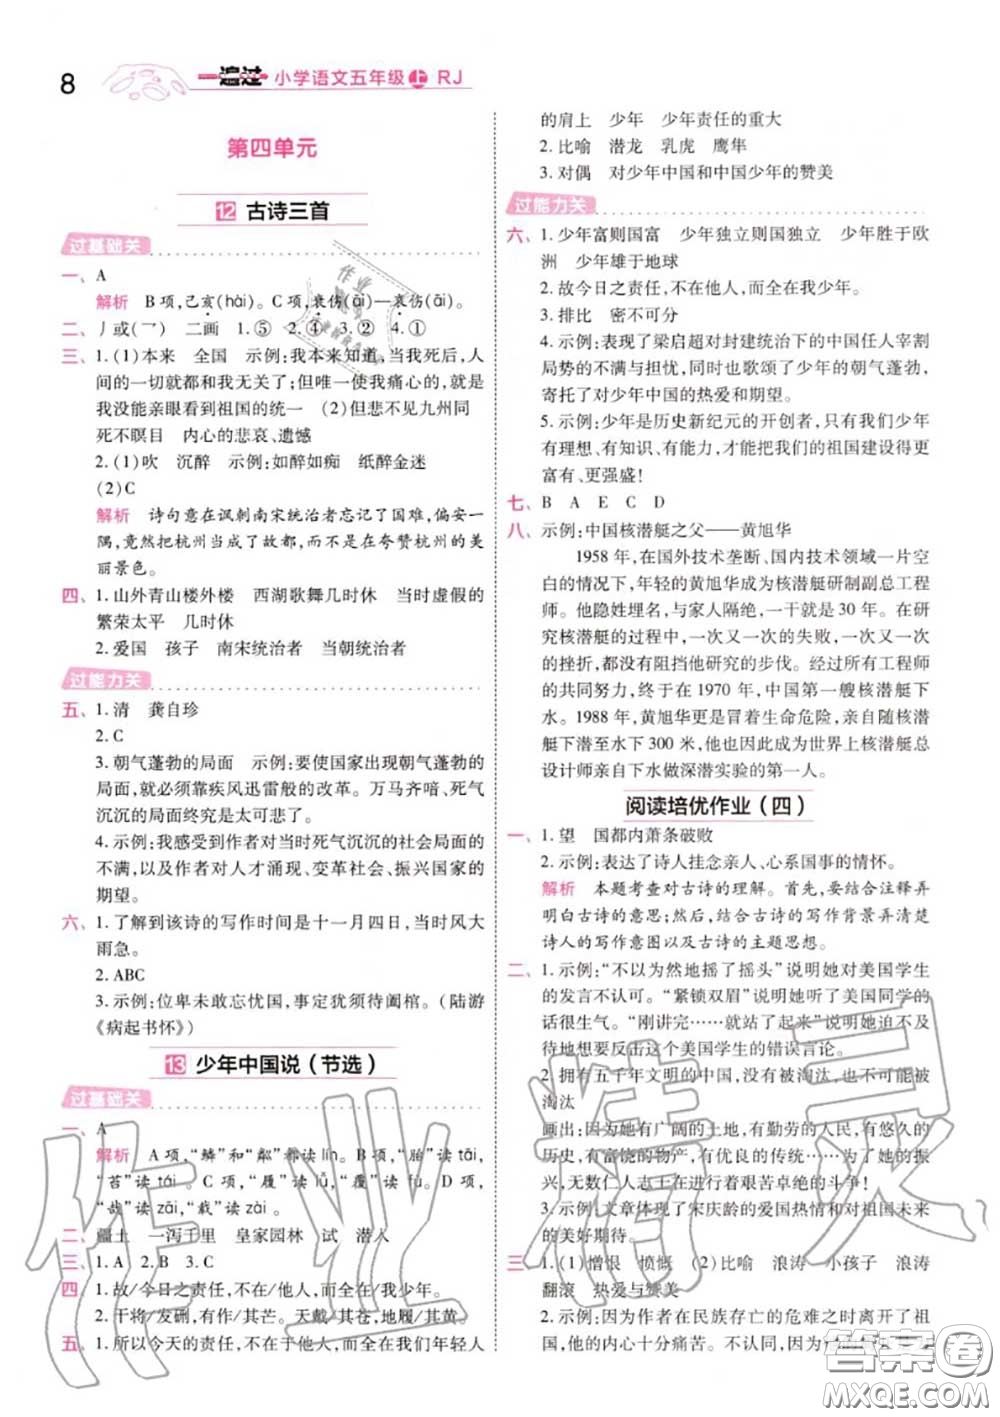 8
一遍过 小学语文五年级上 RJ
第四单元
12 古诗三首
过基础关
一、A
解析 B项,己亥(hài)。C项,衰伤(āi)—哀伤(āi)。
二、丿或(乛) 二画 1.⑤ 2.④ 3.② 4.①
三、1.(1)本来 全国 示例:我本来知道,当我死后,人
间的一切就都和我无关了;但唯一使我痛心的,就是
我没能亲眼看到祖国的统一 (2)但悲不见九州同
死不瞑目 内心的悲哀、遗憾
2.(1)吹 沉醉 示例:如醉如痴 纸醉金迷
(2)C
解析 诗句意在讽刺南宋统治者忘记了国难,偏安一
隅,竟然把杭州当成了故都,而不在夸赞杭州的美
丽景色。
四、1.山外青山楼外楼 西湖歌舞几时休 当时虚假的
繁荣太平 几时休
2.爱国 孩子 南宋统治者 当朝统治者
过能力关
五、1.清 龚自珍
2.C
3.朝气蓬勃的局面 示例:要使国家出现朝气蓬勃的
局面,就必须依靠疾风迅雷般的改革。万马齐喑、死气
沉沉的局面终究是太可悲了。
4.示例:我感受到作者对当时死气沉沉的社会局面的
不满,以及作者对人才涌现、变革社会、振兴国家的
期望。
六、1.了解到该诗的写作时间是十一月四日,当时风大
雨急。
2.ABC
3.示例:位卑未敢忘忧国,事定犹须待阖棺。(陆游
《病起书怀》)
13 少年中国说(节选)
过基础关
一、A
解析 A项,“鳞”和“粼”都读lín。B项,“胎”读tāi,
“苔”读tái。C项,“履”读lǚ,“覆”读fù。D项,
“哉”读zāi,“栽”读zāi。
二、疆土 一泻千里 皇家园林 试 潜入
三、1.A 2.B 3.C
四、1.故/今日之责任,不在/他人,而全在/我少年。
2.干将/发硎,有作/其芒。天戴/其苍,地履/其黄。
五、1.所以今天的责任,不在别人身上,全在我们年轻人
的肩上 少年 少年责任的重大
2.比喻 潜龙 乳虎 鹰隼
3.对偶 对少年中国和中国少年的赞美
过能力关
六、1.少年富则国富 少年独立则国独立 少年胜于欧
洲 少年雄于地球
2.故今日之责任,不在他人,而全在我少年。
3.排比 密不可分
4.示例:表现了梁启超对封建统治下的中国任人宰割
局势的不满与担忧,同时也歌颂了少年的朝气蓬勃,
寄托了对少年中国的热爱和期望。
5.示例:少年是历史新纪元的开创者,只有我们少年
有理想、有知识、有能力,才能把我们的祖国建设得更
富有、更强盛!
七、B A E C D
八、示例:中国核潜艇之父——黄旭华
1958年,在国外技术垄断、国内技术领域一片空
白的情况下,年轻的黄旭华成为核潜艇研制副总工程
师。他隐姓埋名,与家人隔绝,一干就是30年。在研
究核潜艇的过程中,一次又一次的失败,一次又一次
的挫折,都没有阻挡他研究的步伐。经过所有工程师
的共同努力,终于在1970年,中国第一艘核潜艇下
水。1988年,黄旭华更是冒着生命危险,亲自随核潜
艇下潜至水下300米,他也因此成为世界上核潜艇总
设计师亲自下水做深潜实验的第一人。
阅读培优作业(四)
一、1.望 国都内萧条破败
2.示例:表达了诗人挂念亲人、心系国事的情怀。
解析 本题考查对古诗的理解。首先,要结合注释弄
明白古诗的意思;然后,结合古诗的写作背景弄清楚
诗人的写作意图以及古诗的主题思想。
二、1.示例:“不以为然地摇了摇头”说明她对美国学生
的发言不认可。“紧锁双眉”说明她听了美国同学的
话很生气。“刚讲完……就站了起来”说明她迫不及
待地想要反驳这个美国学生的错误言论。
2.拥有五千年文明的中国,没有被淘汰,也不可能被
淘汰
画出:因为她有广阔的土地,有勤劳的人民,有悠久的
历史,有富饶的物产,有优良的传统……为了她的振
兴,无数仁人志士在进行着艰苦卓绝的斗争!
3.示例:文章体现了宋庆龄的爱国热情和对祖国未来
的美好期待。
三、1.(1)憎恨 愤慨 (2)比喻 浪涛 小孩子 浪涛
翻滚 热爱与赞美
2.示例:因为作者在民族存亡的危难之时离开了祖
国,他的内心十分痛苦。不认同,因为
作业精灵
答案圈
MXQE.COM